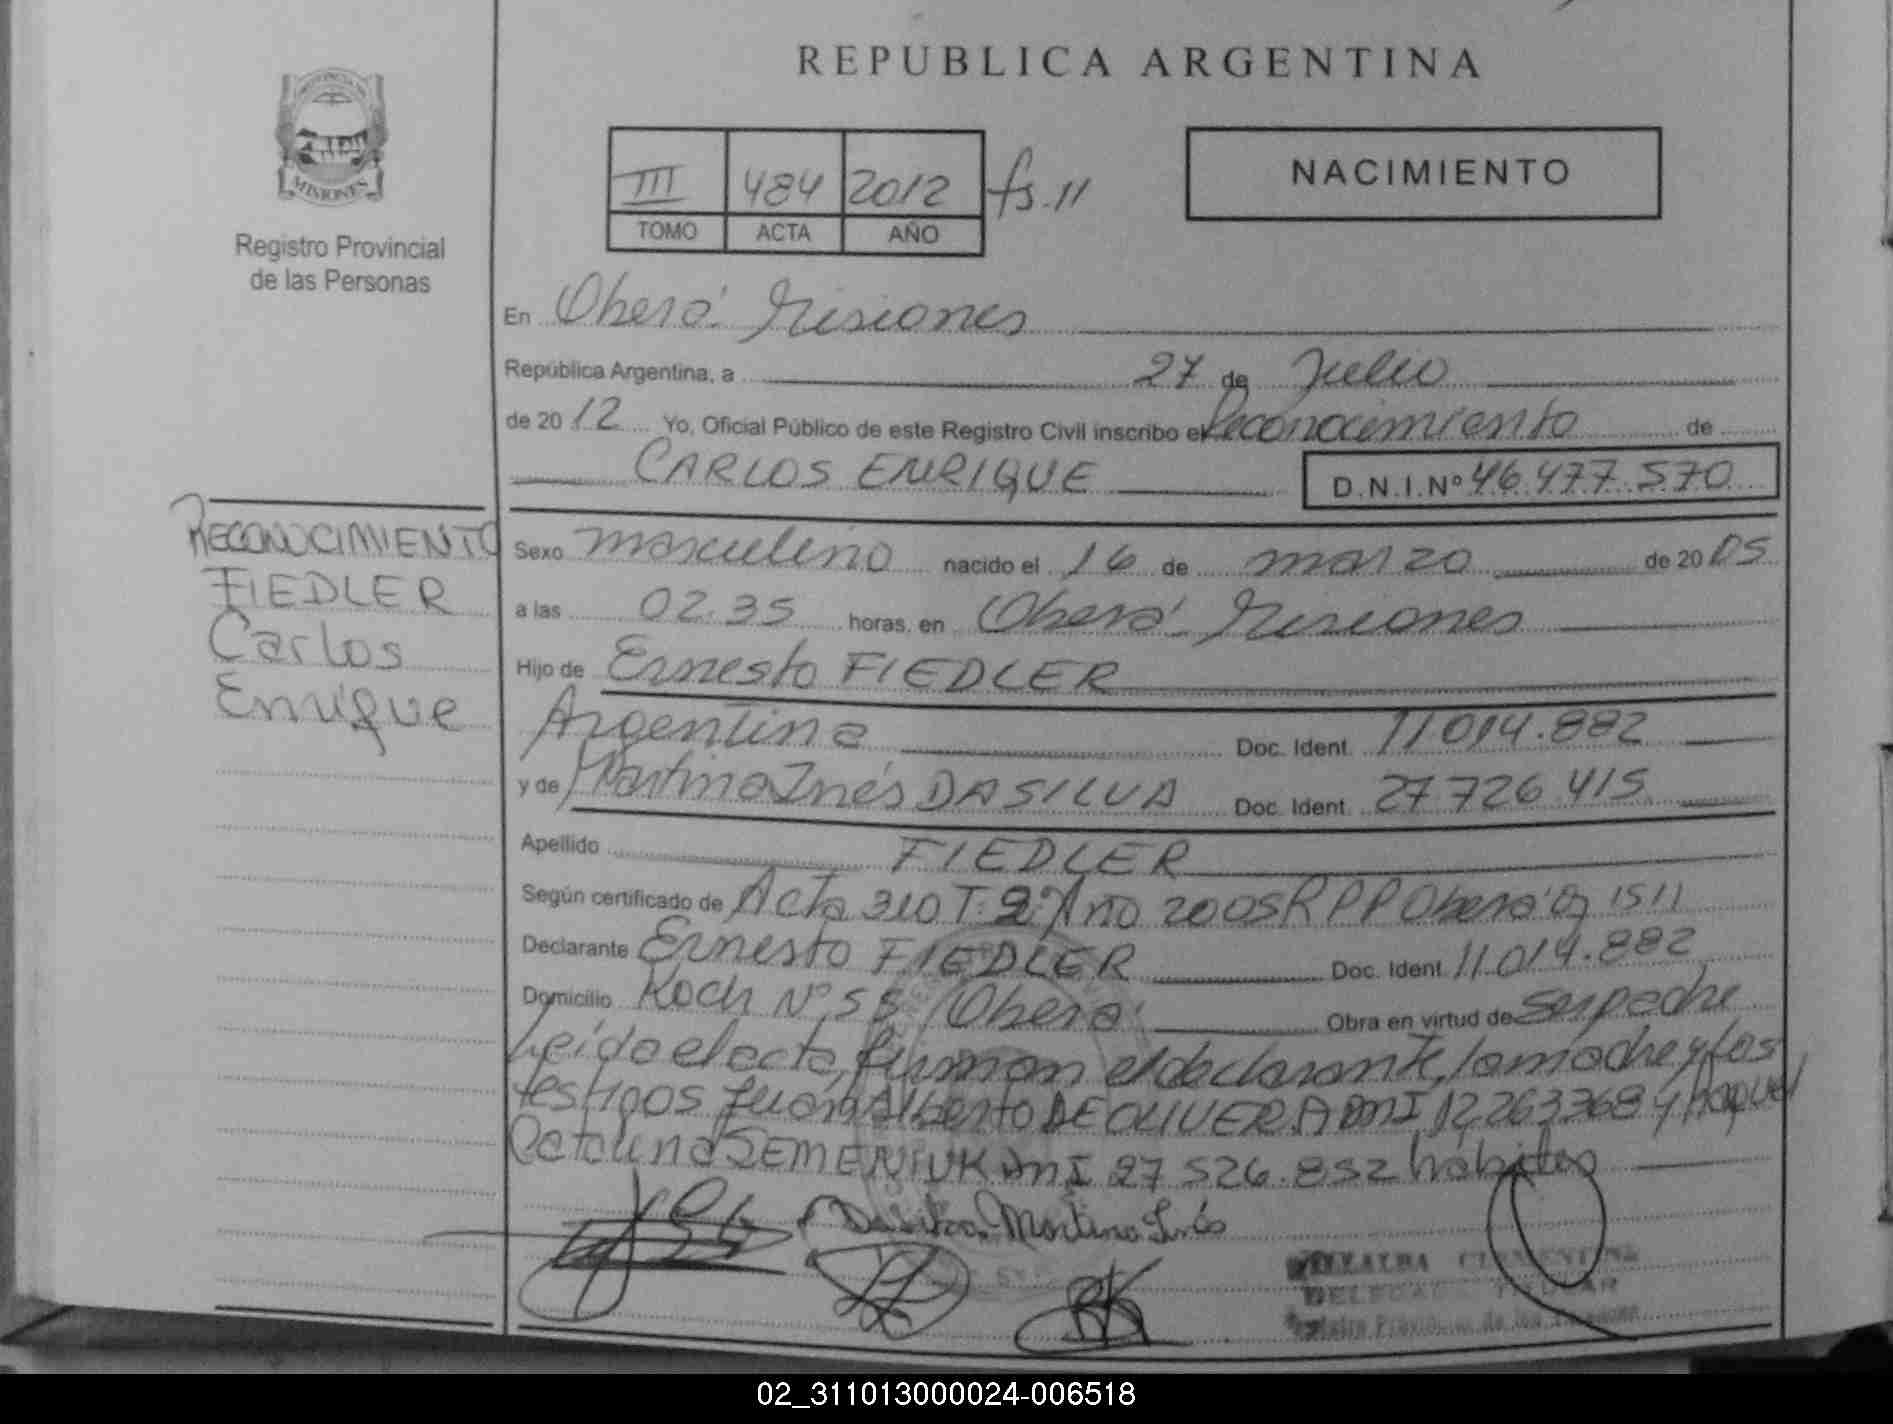 REPUBLICA ARGENTINA
PROVINCIA DE
MISIONES
Registro Provincial
de las Personas
III 484 2012 fs. 11
TOMO ACTA AÑO
NACIMIENTO
En Oberá Misiones
República Argentina, a 27 de Julio
de 2012 Yo, Oficial Público de este Registro Civil inscribo el Reconocimiento de
CARLOS ENRIQUE D.N.I.Nº 46.477.570
RECONOCIMIENTO
FIEDLER
Carlos
Enrique
Sexo masculino nacido el 16 de marzo de 2005
a las 02.35 horas, en Oberá Misiones
Hijo de Ernesto FIEDLER
Argentina Doc. Ident. 11.014.882
y de Martina Inés DA SILVA Doc. Ident. 27.726.415
Apellido FIEDLER
Según certificado de Acta 310 T. 2º Año 2005 R P P Oberá 1511
Declarante Ernesto FIEDLER Doc. Ident 11.014.882
Domicilio Koch Nº 55 Oberá Obra en virtud de ser padre
Leída el acta, firman el declarante, la madre y los
testigos Juan Alberto DE OLIVERA DNI 12263368 y Raquel
Catalina SEMENIUK DNI 27.526.852 hábiles
Da Silva Martina Inés
VILLALBA CLEMENTINA
DELEGADA TITULAR
Registro Provincial de las Personas
02_311013000024-006518